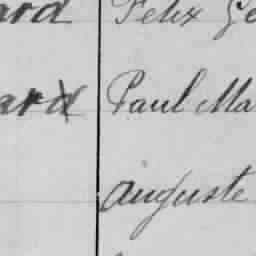 ard Felix Ge
ard Paul Ma
Auguste